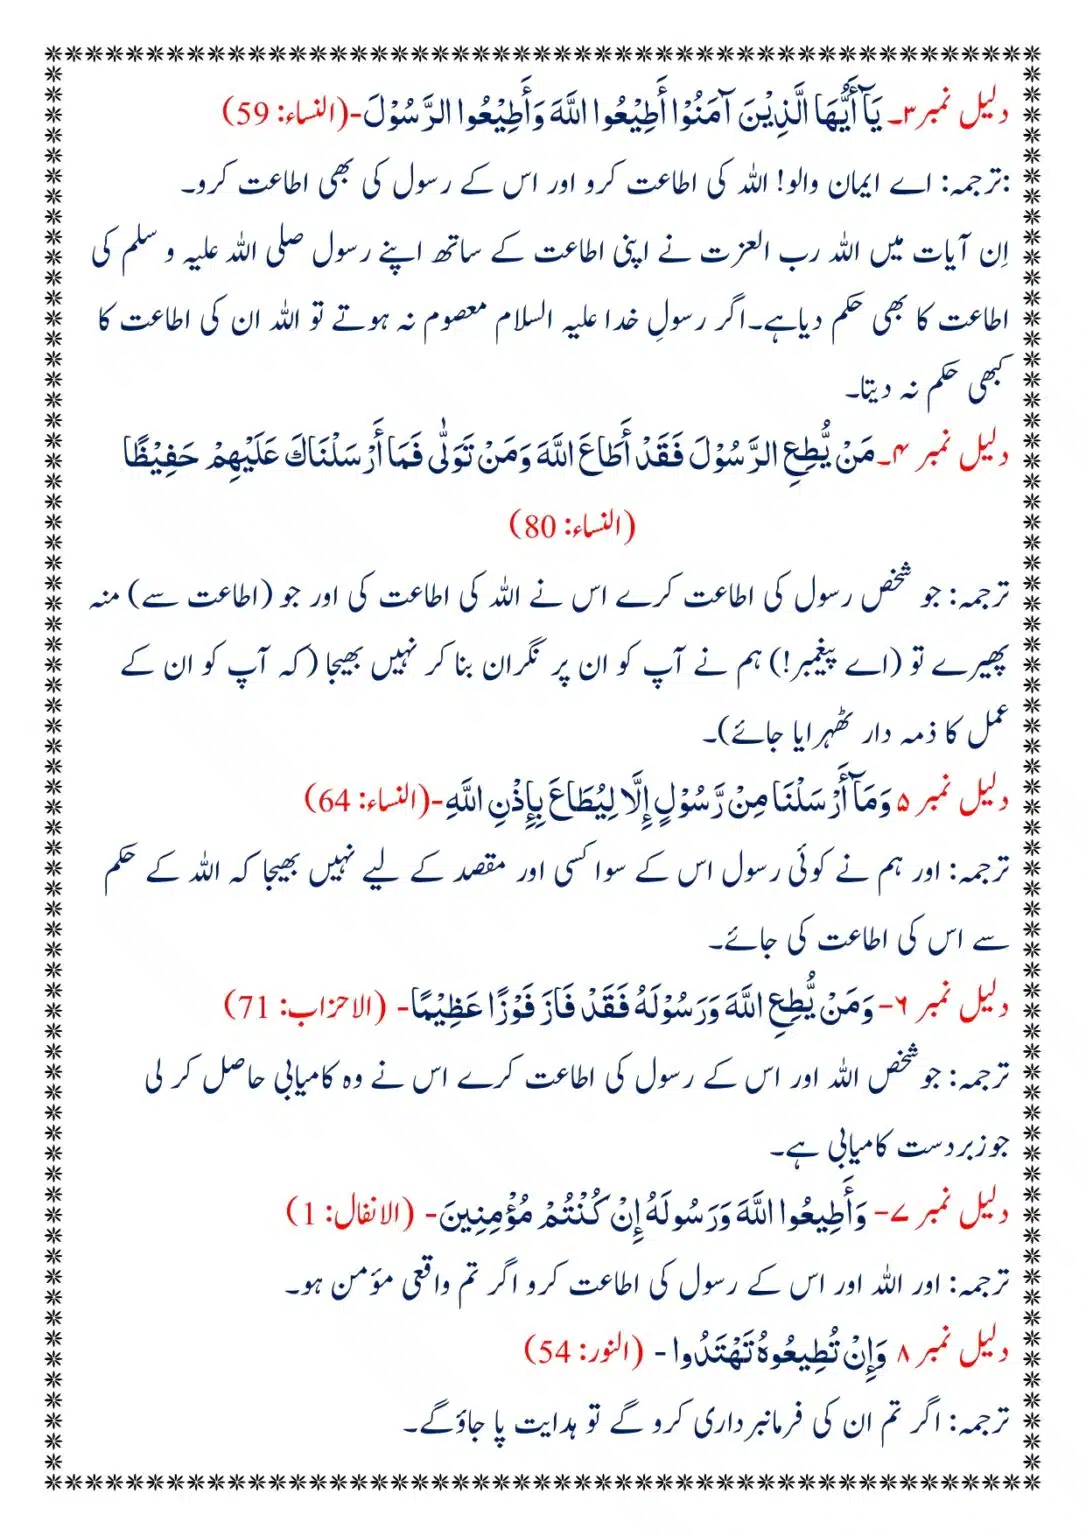 دلیل نمبر ۳۔ يَآ أَيُّهَا الَّذِيْنَ آمَنُوْا أَطِيْعُوا اللَّهَ وَأَطِيْعُوا الرَّسُوْلَ-(النساء: 59)
:ترجمہ: اے ایمان والو! اللہ کی اطاعت کرو اور اس کے رسول کی بھی اطاعت کرو۔
اِن آیات میں اللہ رب العزت نے اپنی اطاعت کے ساتھ اپنے رسول صلی اللہ علیہ و سلم کی
اطاعت کا بھی حکم دیاہے۔اگر رسولِ خدا علیہ السلام معصوم نہ ہوتے تو اللہ ان کی اطاعت کا
کبھی حکم نہ دیتا۔
دلیل نمبر ۴۔ مَنْ يُّطِعِ الرَّسُوْلَ فَقَدْ أَطَاعَ اللَّهَ وَمَنْ تَوَلّٰى فَمَا أَرْسَلْنَاكَ عَلَيْهِمْ حَفِيْظًا
(النساء: 80)
ترجمہ: جو شخص رسول کی اطاعت کرے اس نے اللہ کی اطاعت کی اور جو (اطاعت سے) منہ
پھیرے تو (اے پیغمبر!) ہم نے آپ کو ان پر نگران بنا کر نہیں بھیجا (کہ آپ کو ان کے
عمل کا ذمہ دار ٹھہرایا جائے)۔
دلیل نمبر ۵ وَمَآ أَرْسَلْنَا مِنْ رَّسُوْلٍ إِلَّا لِيُطَاعَ بِإِذْنِ اللَّهِ-(النساء: 64)
ترجمہ: اور ہم نے کوئی رسول اس کے سوا کسی اور مقصد کے لیے نہیں بھیجا کہ اللہ کے حکم
سے اس کی اطاعت کی جائے۔
دلیل نمبر ۶- وَمَنْ يُّطِعِ اللَّهَ وَرَسُوْلَهُ فَقَدْ فَازَ فَوْزًا عَظِيْمًا- (الاحزاب: 71)
ترجمہ: جو شخص اللہ اور اس کے رسول کی اطاعت کرے اس نے وہ کامیابی حاصل کر لی
جوزبردست کامیابی ہے۔
دلیل نمبر ۷- وَأَطِيعُوا اللَّهَ وَرَسُولَهُ إِنْ كُنْتُمْ مُؤْمِنِينَ- (الانفال: 1)
ترجمہ: اور اللہ اور اس کے رسول کی اطاعت کرو اگر تم واقعی مؤمن ہو۔
دلیل نمبر ۸ وَإِنْ تُطِيعُوهُ تَهْتَدُوا - (النور: 54)
ترجمہ: اگر تم ان کی فرمانبرداری کرو گے تو ہدایت پا جاؤگے۔